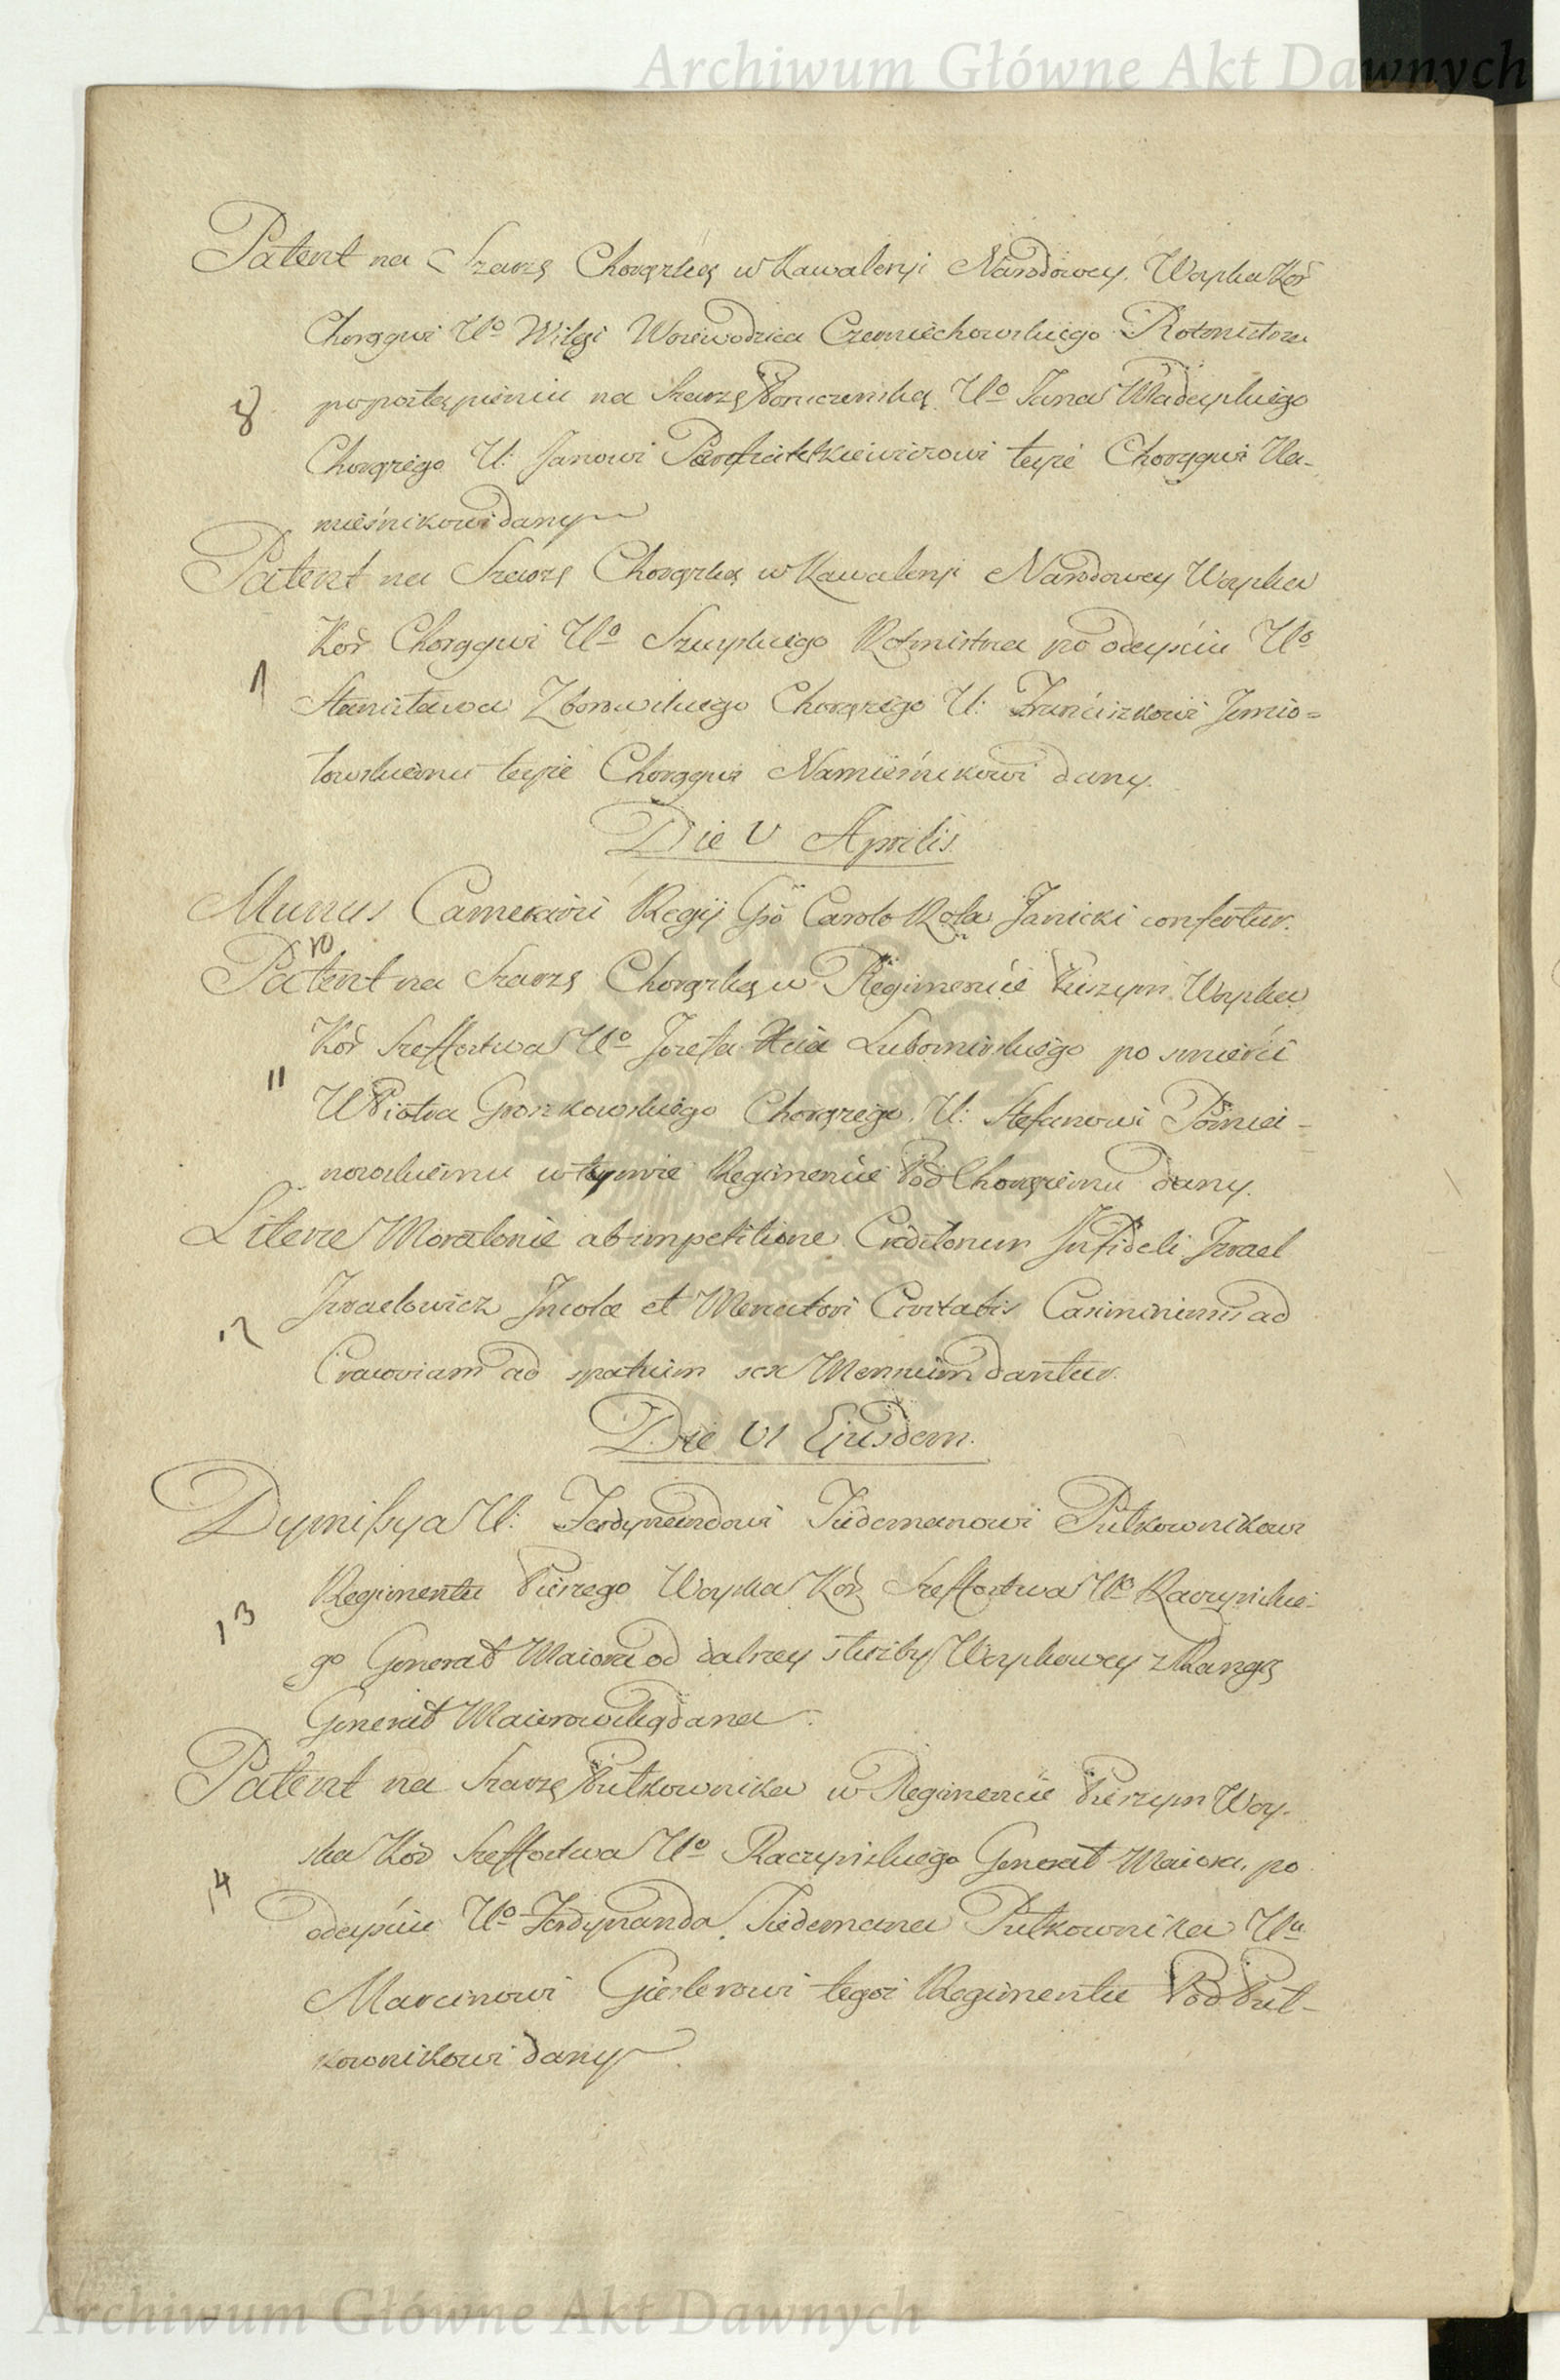 Archiwum Główne Akt Dawnych
Patent na Szarżę Chorążką w Kawaleryi Narodowey Woyska Kor
Chorągwi Uo Wilgi Woiewodzica Czerniechowskiego Rotmistrza
8 po postąpieniu na Szarżę Poruczniską Uo Jana Uładeyskiego
Chorążego U: Janowi teyże Chorągwi Na-
mieśnikowi dany
Patent na Szarżę Chorążką w Kawaleryi Narodowey Woyska
Kor Chorągwi Uo Szuyskiego Rotmistrza po odeyściu Uo
Stanisława Zborowskiego Chorążego U: Franciszkowi Jemio=
łowskiemu teyże Chorągwi Namieśnikowi dany.
Die V Aprilis
Munus Camerarii Regij Gso Carolo Rola Janicki confertur.
10
Patent na Szarżę Chorążką w Regimencie Pieszym Woyska
Kor Szeffostwa Uo Jozefa Xcia Lubomirskiego po smierci
11 U Piotra Gorzkowskiego Chorążego. U: Stefanowi
w tymże Regimencie Pod Chorążemu dany.
Literæ Moratoriæ ab impetitione Creditorum Infideli Izrael
Izraelowicz Incolæ et Mercatori Civitatis Casimiriensis ad
12 Cracoviam ad spatium sex Mensium dantur.
Die VI Ejusdem.
Dymissya U: Ferdynandowi Tiedemanowi Pułkownikowi
Regimentu Pieszego Woyska Kor Szeffostwa Uo Raczynskie-
13 go Generał Maiora od dalszey służby Woyskowey z Rangą
Generał Maiorowską dana.
Patent na Szarżę Pułkownika w Regimencie Pieszym Woy-
ska Kor Szeffostwa Uo Raczynskiego Generał Maiora, po
14 odeyściu Uo Ferdynanda Tiedemana Pułkownika Uu
Marcinowi Gieslerowi tegoż Regimentu Pod Puł-
kownikowi dany.
Archiwum Główne Akt Dawnych